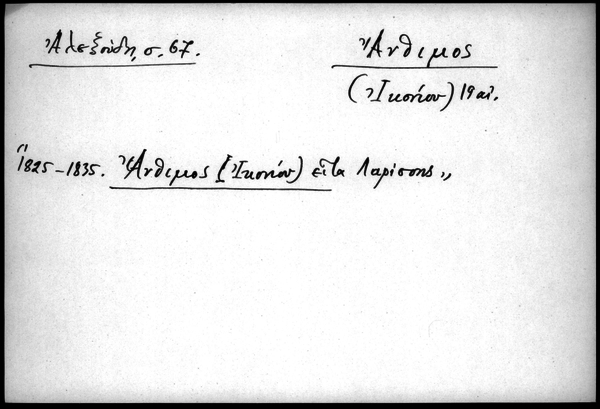 Ἀλεξούδη, σ. 67.
Ἄνθιμος
(Ἰκονίου) 19 αἰ.
"1825-1835. Ἄνθιμος [Ἰκονίου) εἶτα Λαρίσσης"